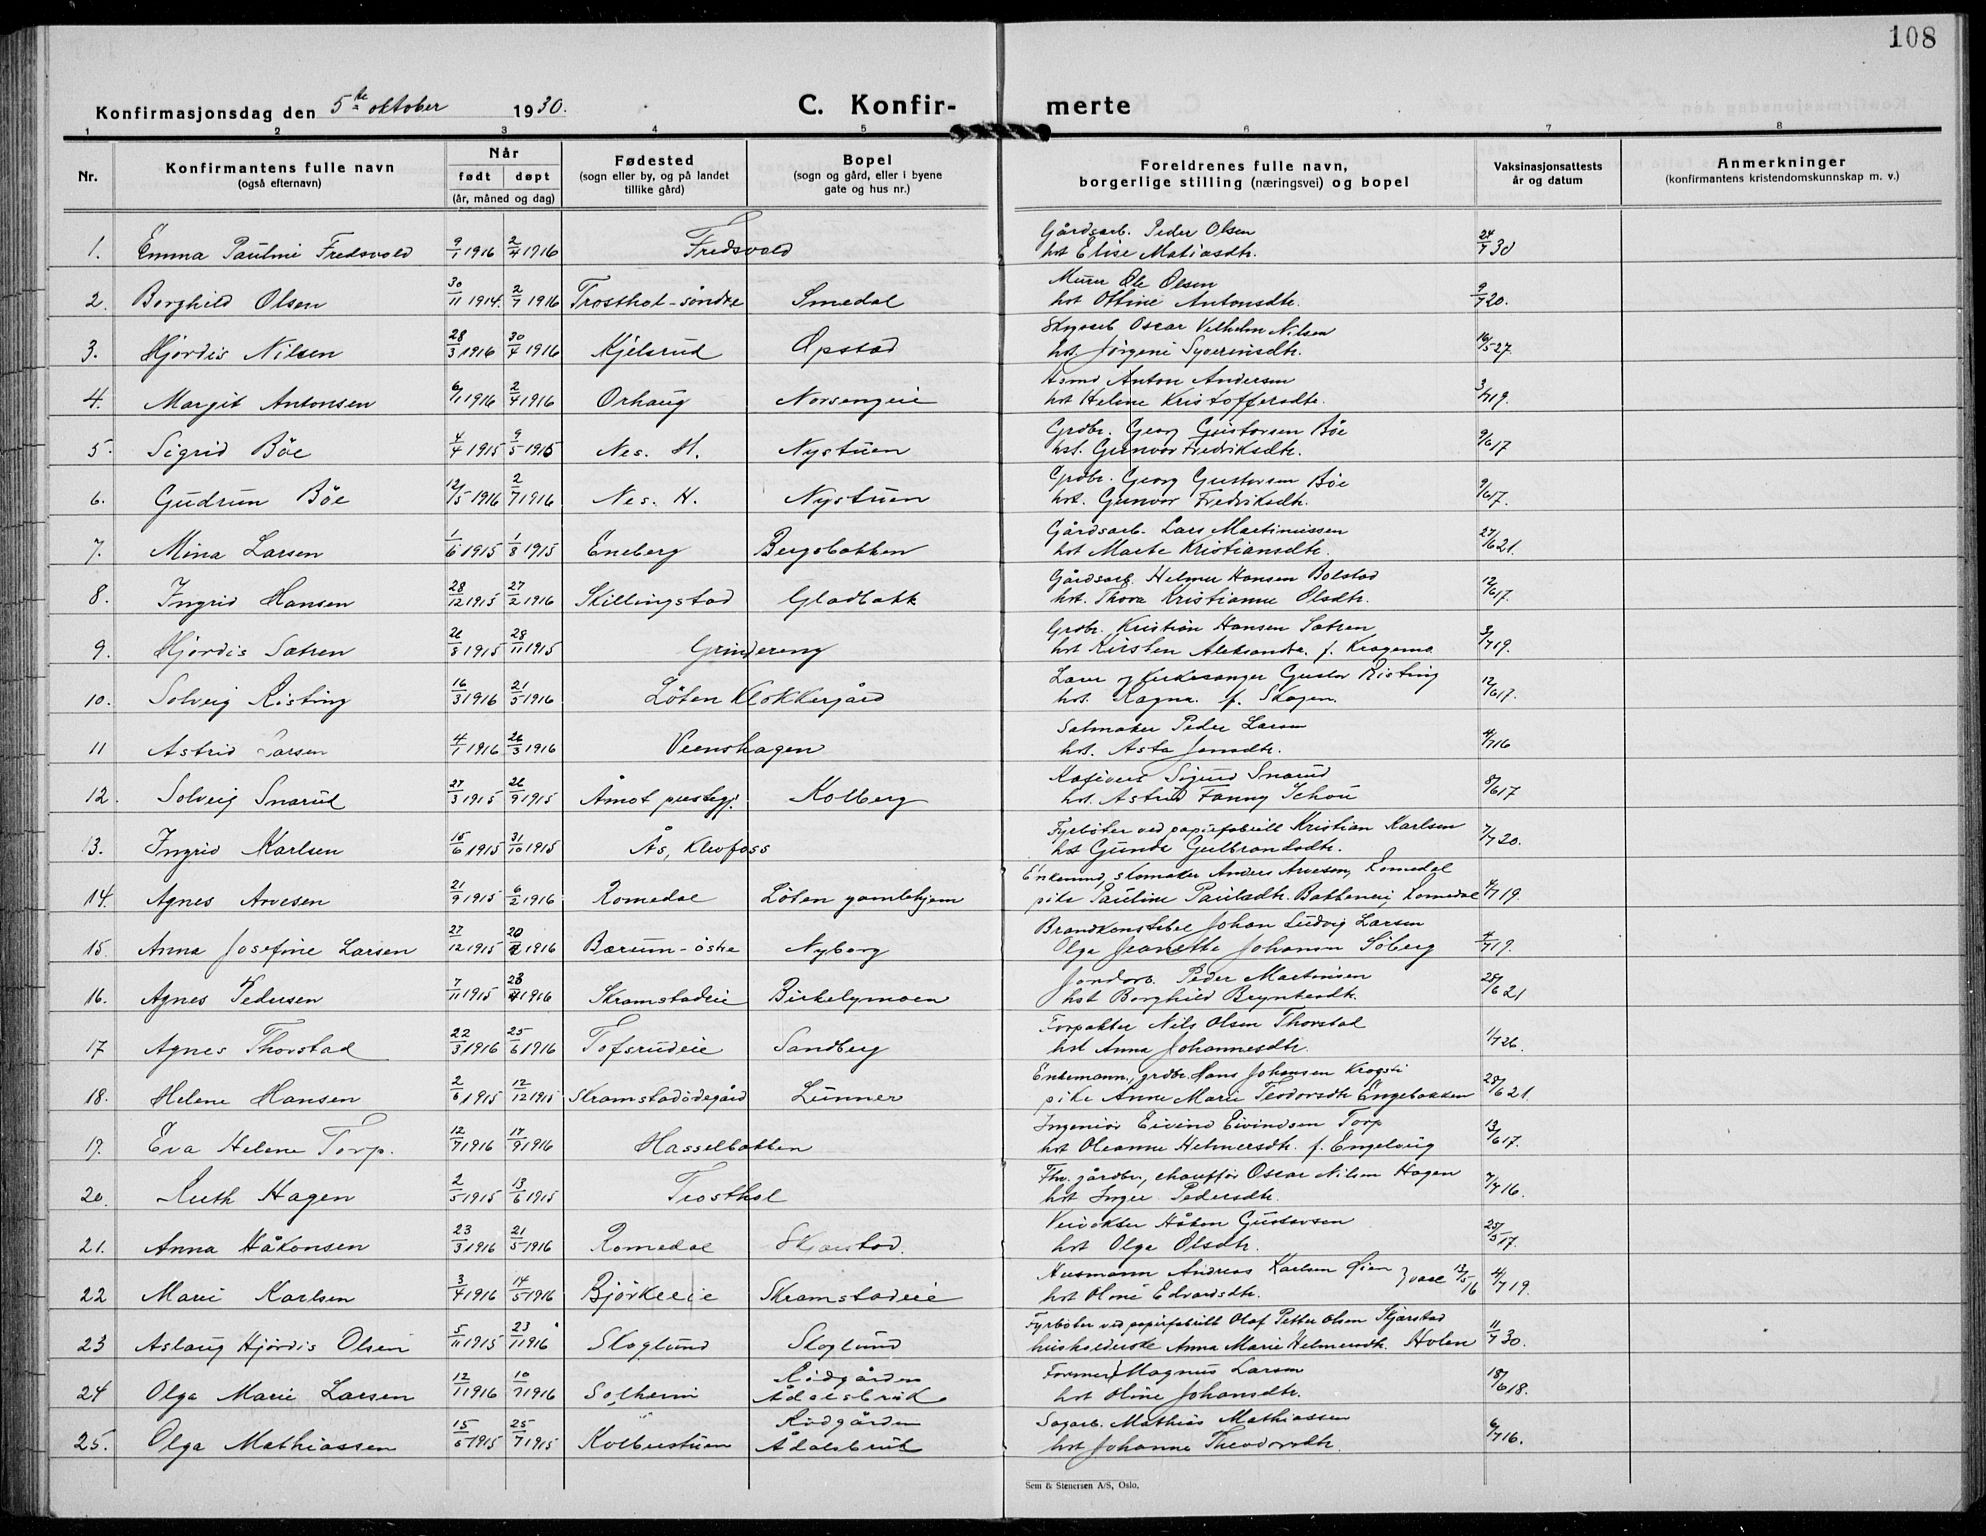 108
Konfirmasjonsdag den 5te oktober 1930.
C. Konfir- merte
1 2 3 4 5 6 7 8
Nr.
Konfirmantens fulle navn
(også efternavn)
Når
født døpt
(år, måned og dag)
Fødested
(sogn eller by, og på landet
tillike gård)
Bopel
(sogn og gård, eller i byene
gate og hus nr.)
Foreldrenes fulle navn,
borgerlige stilling (næringsvei) og bopel
Vaksinasjonsattests
år og datum
Anmerkninger
(konfirmantens kristendomskunnskap m. v.)
Gårdsarb. Peder Olsen
1. Emma Pauline Fredsvold 9/1 1916 2/4 1916 Fredsvold hst Elise Matiasdtr. 24/7 30
Murer Ole Olsen
2. Borghild Olsen 30/11 1914. 2/7 1916 Trosthol-søndre Smedal hst Ottine Antonsdtr. 9/7 20.
Skogsarb Oscar Vilhelm Nilsen
3. Hjørdis Nilsen 28/3 1916 30/4 1916 Kjelsrud Opstad hst. Jørgine Syverinsdtr. 16/5 27.
Anton Andersen
4. Margit Antonsen 6/1 1916 2/4 1916 Orhaug Norsengeie hst Helene Kristoffersdtr. 3/7 19.
Grdbr. Georg Gustavsen Bøe
5. Sigrid Bøe 4/4 1915 9/5 1915 Nes. H. Nystuen hst. Gunvor Fredriksdtr. 9/6 17
Grdbr. Georg Gustavsen Bøe
6. Gudrun Bøe 12/5 1916 2/7 1916 Nes. H. Nystuen hst. Gunvor Fredriksdtr. 9/6 17.
Gårdsarb. Lars Martinussen
7. Mina Larsen 1/6 1915 1/8 1915 Eneberg Bergsbakken hst Marte Kristiansdtr. 27/6 21.
Gårdsarb. Helmer Hansen Bolstad
8. Ingrid Hansen 28/12 1915 27/2 1916 Skillingstad Gladbakk hst. Thora Kristianne Olsdtr. 12/6 17.
Grdbr. Kristian Hansen Sætren
9. Hjørdis Sætren 26/8 1915 28/11 1915 Grindereng hst Kirsten Aleksandra f. Kragermo 3/7 19.
Lærer og kirkesanger Gustav Risting
10. Solveig Risting 16/3 1916 21/5 1916 Løten Klokkergård hst. Ragna f. Skogen. 12/6 17.
Salmaker Peder Larsen
11 Astrid Larsen 4/1 1916 26/3 1916 Veenshagen hst. Asta Jensdtr. 4/7 16
Sigurd Snarud
12. Solveig Snarud 27/3 1915 26/9 1915 Åmot prestegj. Kolberg hst. Astrid Fanny Schou 8/6 17
Fyrbøter ved papirfabrikk Kristian Karlsen
13. Ingrid Karlsen 15/6 1915 31/10 1915 Ås, Klevfoss hst Gunda Gulbrandsdtr. 7/7 20.
Enkemand, skomaker Anders Arvesen, Romedal
14. Agnes Arvesen 21/9 1915 6/2 1916 Romedal Løten gamlehjem pike Pauline Paulsdtr. Bakkeneie, Romedal 4/7 19.
Brandkonstabel Johan Ludvig Larsen
15. Anna Josefine Larsen 27/12 1915 1916 Bærum-østre Nyborg Olga Jeanette Johansen Søberg 4/7 19.
Jordarb. Peder Martinsen
16. Agnes Pedersen 7/11 1915 23/4 1916 Skramstadeie Birkelymoen hst Borghild Bryntesdtr. 28/6 21
Forpakter Nils Olsen Thorstad
17 Agnes Thorstad 22/3 1916 25/6 1916 Tofsrudeie Sandberg hst Anna Johannesdtr. 1/7 26.
Enkemann, grdbr. Hans Johansen Krogsti
18. Helene Hansen 2/6 1915 12/12 1915 Skramstadødegård Lunner pike Anne Marie Teodorsdtr Engebakken 28/6 21.
Ingeniør Eivind Eivindsen Torp
19. Eva Helene Torp. 12/7 1916 17/9 1916 Hasselbakken hst Oleanne Helmersdtr. f. Engelaug 13/6 17.
Fhv. gårdbr, chauffør Oscar Nilsen Hagen
20 Ruth Hagen 2/5 1915 13/6 1915 Trosthol hst Inger Pedersdtr. 7/7 16.
Veivokter Håkon Gustavsen
21. Anna Håkonsen 23/3 1916 21/5 1916 Romedal Skjærstad. hst Olga Olsdtr. 25/5 17.
Husmann Andreas Karlsen Øien
22 Marie Karlsen 3/4 1916 14/5 1916 Bjørkeeie Skramstadeie hst Oline Edvardsdtr. 4/7 19.
Fyrbøter ved papirfabrikk Olaf Petter Olsen Skjærstad
23 Aslaug Hjørdis Olsen 5/11 1915 23/1 1916 Skoglund Skoglund husholderske Anna Marie Helmersdtr. Holen 11/7 30.
Rødgården Former Magnus Larsen
24 Olga Marie Larsen 12/1 1916 10/7 1916 Solheim Ådalsbruk hst. Oline Johansdtr. 18/6 18.
Rødgården Sagarb. Mathias Mathiassen
25. Olga Mathiassen 15/5 1915 25/7 1915 Kolberstuen Ådalsbruk hst Johanne Theodorsdtr. 6/7 16.
Sem & Stenersen A/S, Oslo.